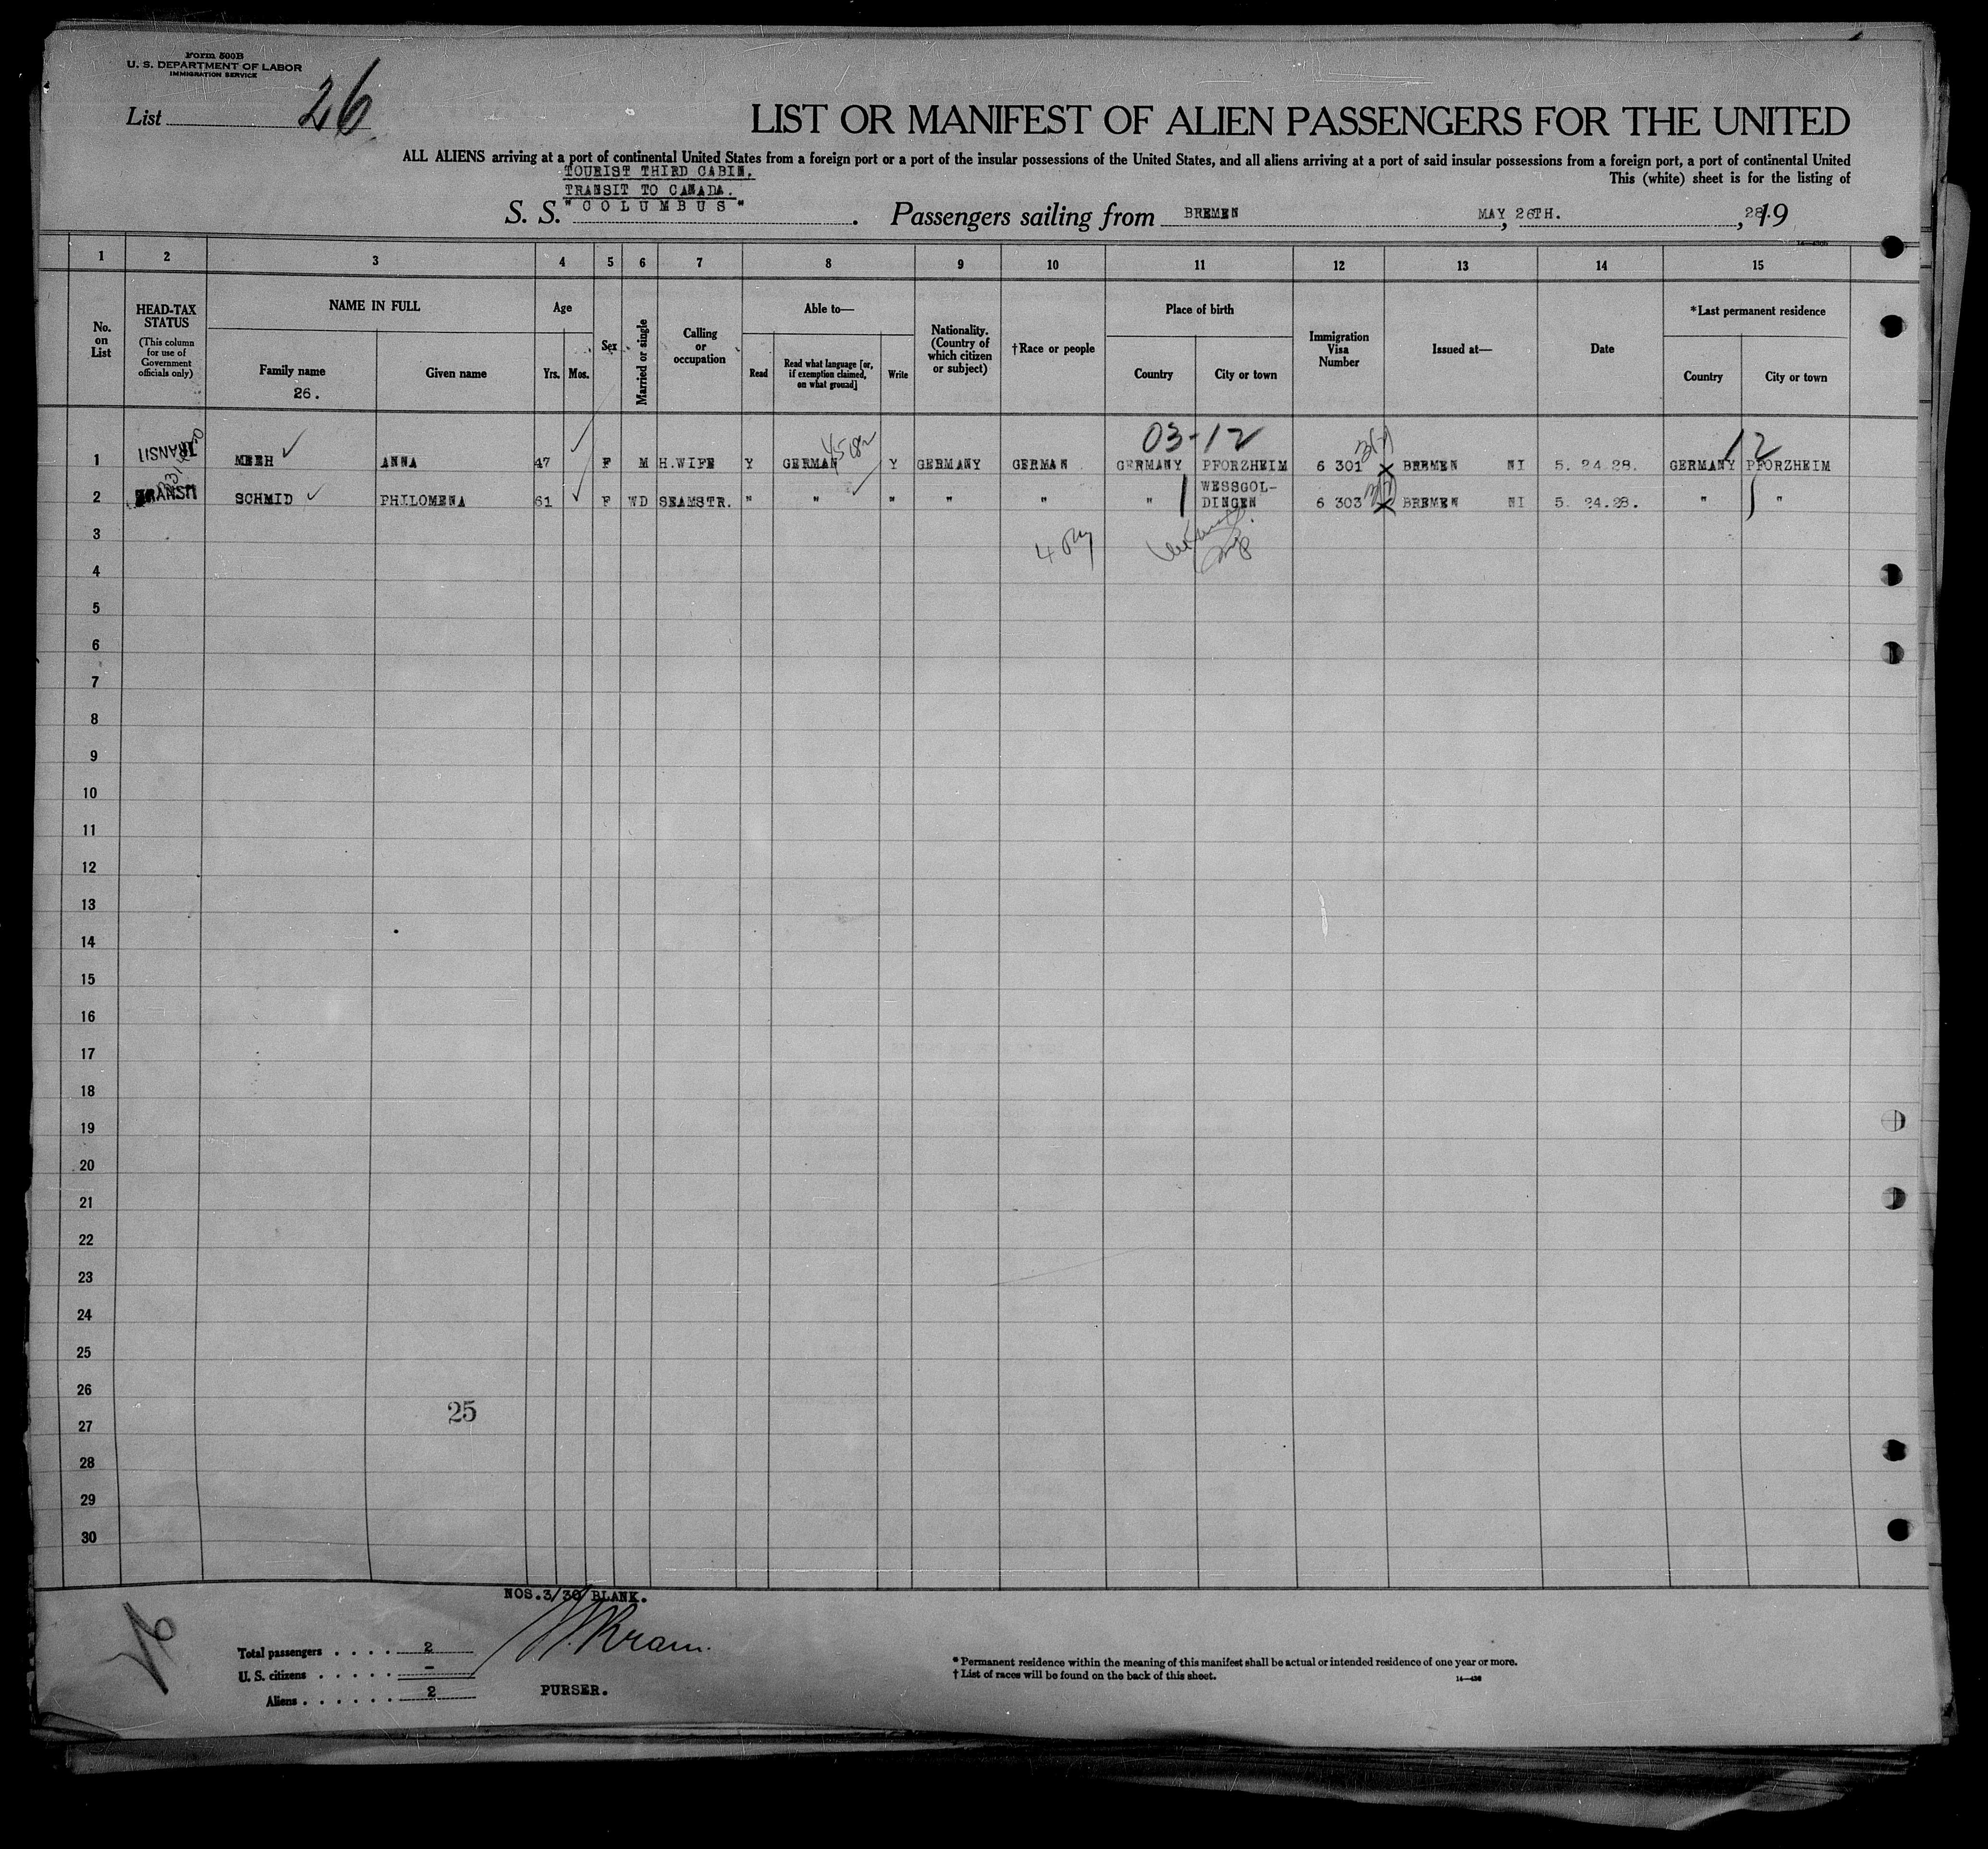 Form 500B
U. S. DEPARTMENT OF LABOR
IMMIGRATION SERVICE
List 26
LIST OR MANIFEST OF ALIEN PASSENGERS FOR THE UNITED
ALL ALIENS arriving at a port of continental United States from a foreign port or a port of the insular possessions of the United States, and all aliens arriving at a port of said insular possessions from a foreign port, a port of continental United
This (white) sheet is for the listing of
TOURIST THIRD CABIN.
TRANSIT TO CANADA.
S. S. "COLUMBUS". Passengers sailing from BREMEN, MAY 26TH., 28. 19
1 2 3 4 5 6 7 8 9 10 11 12 13 14 15
No. on List
HEAD-TAX STATUS
(This column for use of Government officials only)
NAME IN FULL
Family name
Given name
26.
Age
Yrs. Mos.
Sex
Married or single
Calling or occupation
Able to—
Read
Read what language [or, if exemption claimed, on what ground]
Write
Nationality. (Country of which citizen or subject)
†Race or people
Place of birth
Country
City or town
Immigration Visa Number
Issued at—
Date
*Last permanent residence
Country
City or town
03-12
12
1 TRANSIT MEEH ANNA 47 F M H.WIFE Y GERMAN Y GERMANY GERMAN GERMANY PFORZHEIM 6 301 BREMEN NI 5. 24.28. GERMANY PFORZHEIM
2 TRANSIT SCHMID PHILOMENA 61 F WD SEAMSTR. " " " " " " WESSGOL-
DINGEN 6 303 BREMEN NI 5. 24.28. " "
3
4
5
6
7
8
9
10
11
12
13
14
15
16
17
18
19
20
21
22
23
24
25
26
25
27
28
29
30
NOS.3/30 BLANK.
Total passengers . . . . 2
U. S. citizens . . . . . –
Aliens . . . . . . 2
PURSER.
* Permanent residence within the meaning of this manifest shall be actual or intended residence of one year or more.
† List of races will be found on the back of this sheet.